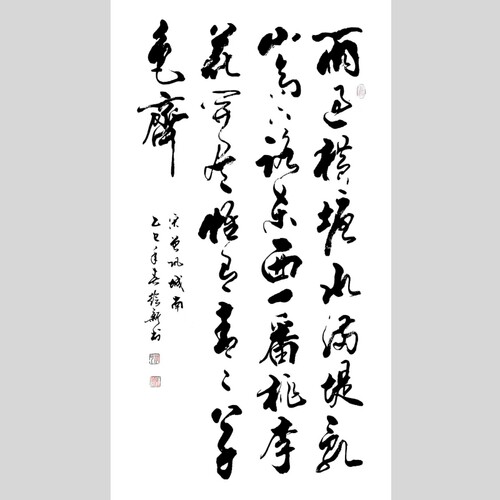 雨過橫塘水滿堤乱
山高下路東西一番桃李
花開尽惟有青〻草
色齊
宋曾巩城南
乙巳年春新书